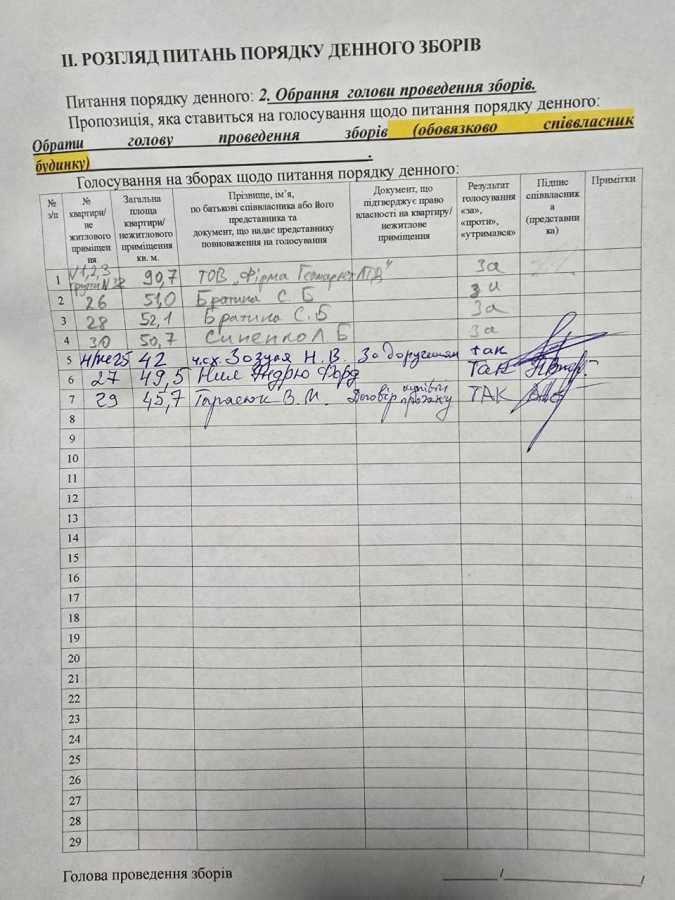 ІІ. РОЗГЛЯД ПИТАНЬ ПОРЯДКУ ДЕННОГО ЗБОРІВ
Питання порядку денного: 2. Обрання голови проведення зборів.
Пропозиція, яка ставиться на голосування щодо питання порядку денного:
Обрати голову проведення зборів (обовязково співвласник
будинку)
Голосування на зборах щодо питання порядку денного:
№ з/п № квартири/ не житлового приміщен ня Загальна площа квартири/ нежитлового приміщення кв. м. Прізвище, ім’я, по батькові співвласника або його представника та документ, що надає представнику повноваження на голосування Документ, що підтверджує право власності на квартиру/ нежитлове приміщення Результат голосування «за», «проти», «утримався» Підпис співвласник а (представни ка) Примітки
1 1,2,3 90,7 ТОВ „Фірма ЛТД“ За
2 26 51,0 Братина С. Б за
3 28 52,1 Братина С. Б За
4 30 50,7 Л Б За
5 42 Зозуля Н. В. За дорученням так
6 27 49,5 Нил Эндрю Форд Так
7 29 45,7 Тарасюк В. М. Договір купівлі продажу ТАК
8
9
10
11
12
13
14
15
16
17
18
19
20
21
22
23
24
25
26
27
28
29
Голова проведення зборів ________ /____________________/